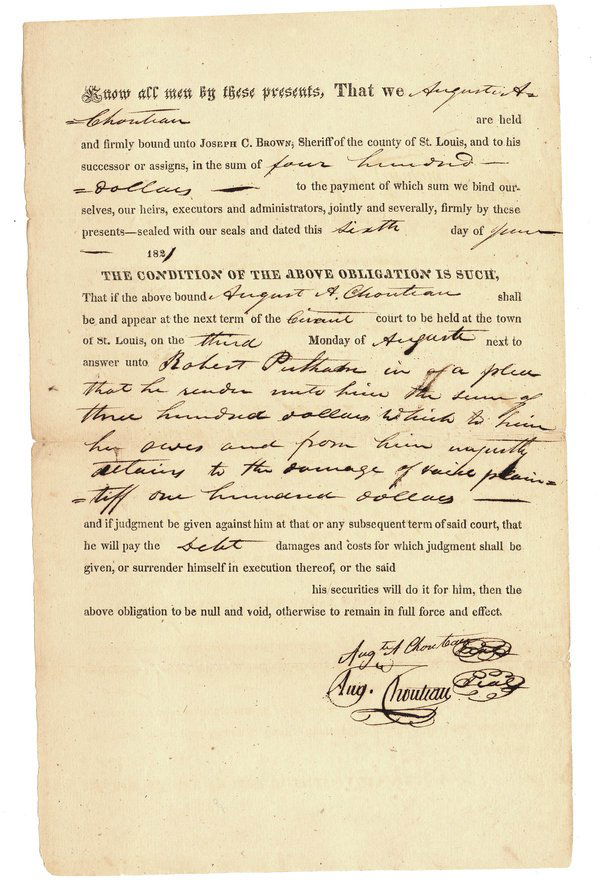 Know all men by these presents, That we August A=
=Chouteau are held
and firmly bound unto JOSEPH C. BROWN, Sheriff of the county of St. Louis, and to his
successor or assigns, in the sum of four hundred —
=dollars — to the payment of which sum we bind our-
selves, our heirs, executors and administrators, jointly and severally, firmly by these
presents—sealed with our seals and dated this Sixth day of June
— 1821
THE CONDITION OF THE ABOVE OBLIGATION IS SUCH,
That if the above bound August A. Chouteau shall
be and appear at the next term of the Circuit court to be held at the town
of St. Louis, on the third Monday of August next to
answer unto Robert in of a plea
that he render unto him the sum of
three hundred dollars which to him
he owes and from him unjustly
detains to the damage of said plain=
=tiff one hundred dollars —
and if judgment be given against him at that or any subsequent term of said court, that
he will pay the debt damages and costs for which judgment shall be
given, or surrender himself in execution thereof, or the said
his securities will do it for him, then the
above obligation to be null and void, otherwise to remain in full force and effect.
Augte A Chouteau Seal
Aug. Chouteau Seal